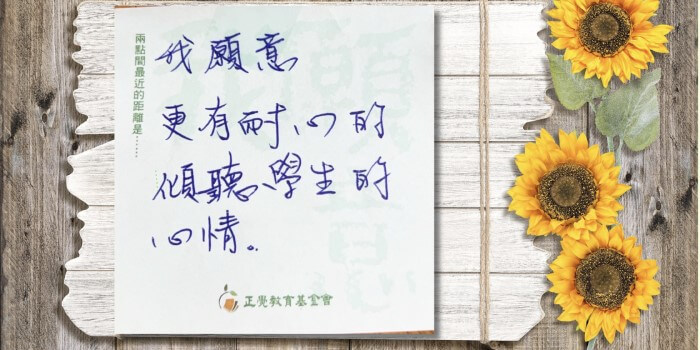 兩點間最近的距離是……
我願意
更有耐心的
傾聽學生的
心情。
正覺教育基金會